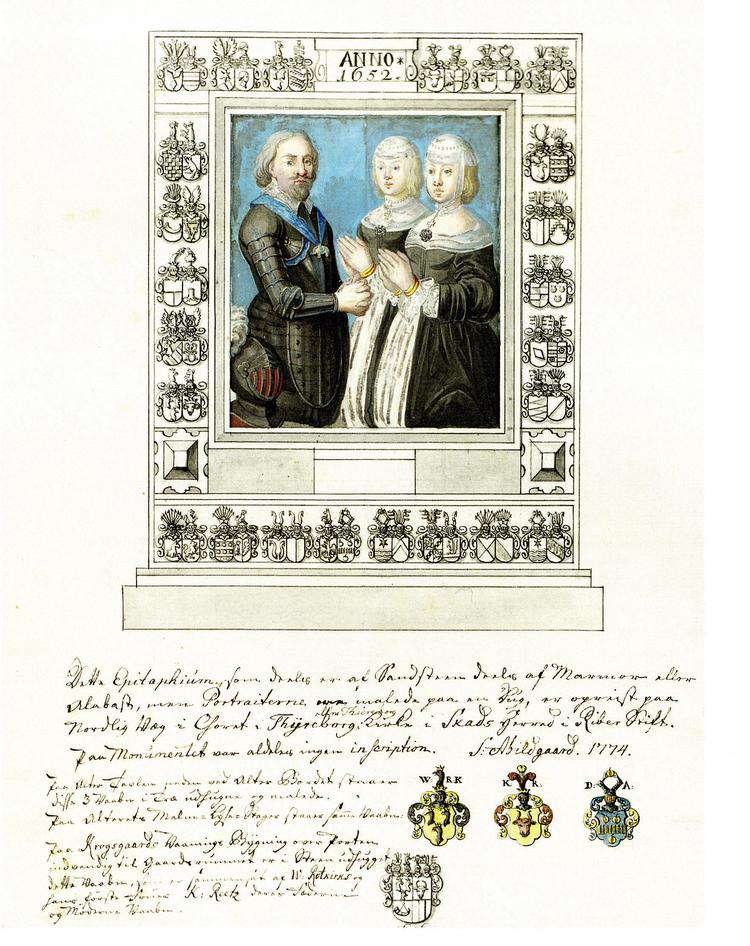 ANNO
1652.
Dette Epitaphium, som deels er af Sandsteen deels af Marmor eller
Alabast, men Portraiterne ere malede paa en Dug, er opreist paa
eller Thiereborg
Nordlig Væg i Choret i Thÿreborg Kirke i Skads Herred i Riber Stift.
paa Monumentet var aldeles ingen inscription. S: Abildgaard. 1774.
paa Alter Tavlen neden ved Alter Bordet staaer
disse 3 Vaaben i Træ udhugne og malede.
W RK
K R.
D: A:
paa Alterets Malm-Lyse Stager staaer samme Vaaben:
paa Krogsgaards Vaanings Bÿgning over Porten
indvendig til Gaardsrummet er i Steen udhugget
dette Vaaben, som er sammensat af W: og
hans første Frues K: Reetz deres Fæderne
og Møderne Vaaben.